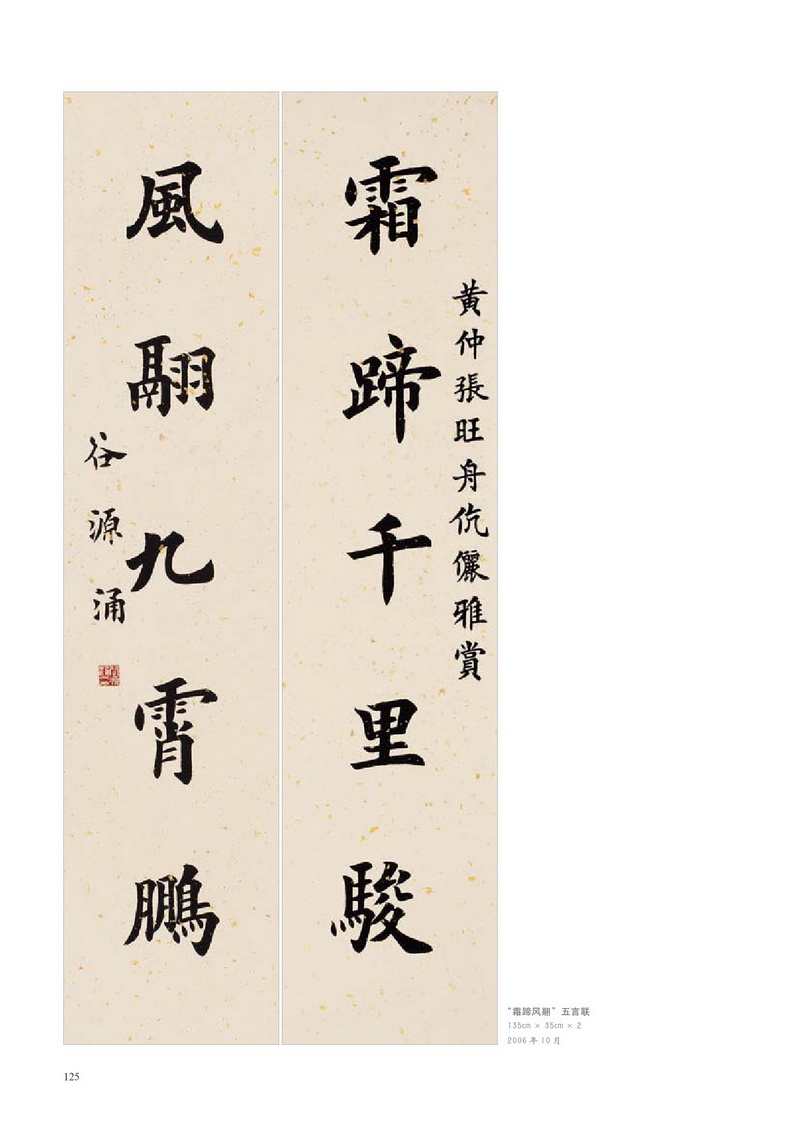 黄仲張旺舟伉儷雅賞
霜蹄千里駿
風翮九霄鵬
谷源涌
“霜蹄风翮”五言联
135cm × 35cm × 2
2006 年 10 月
125